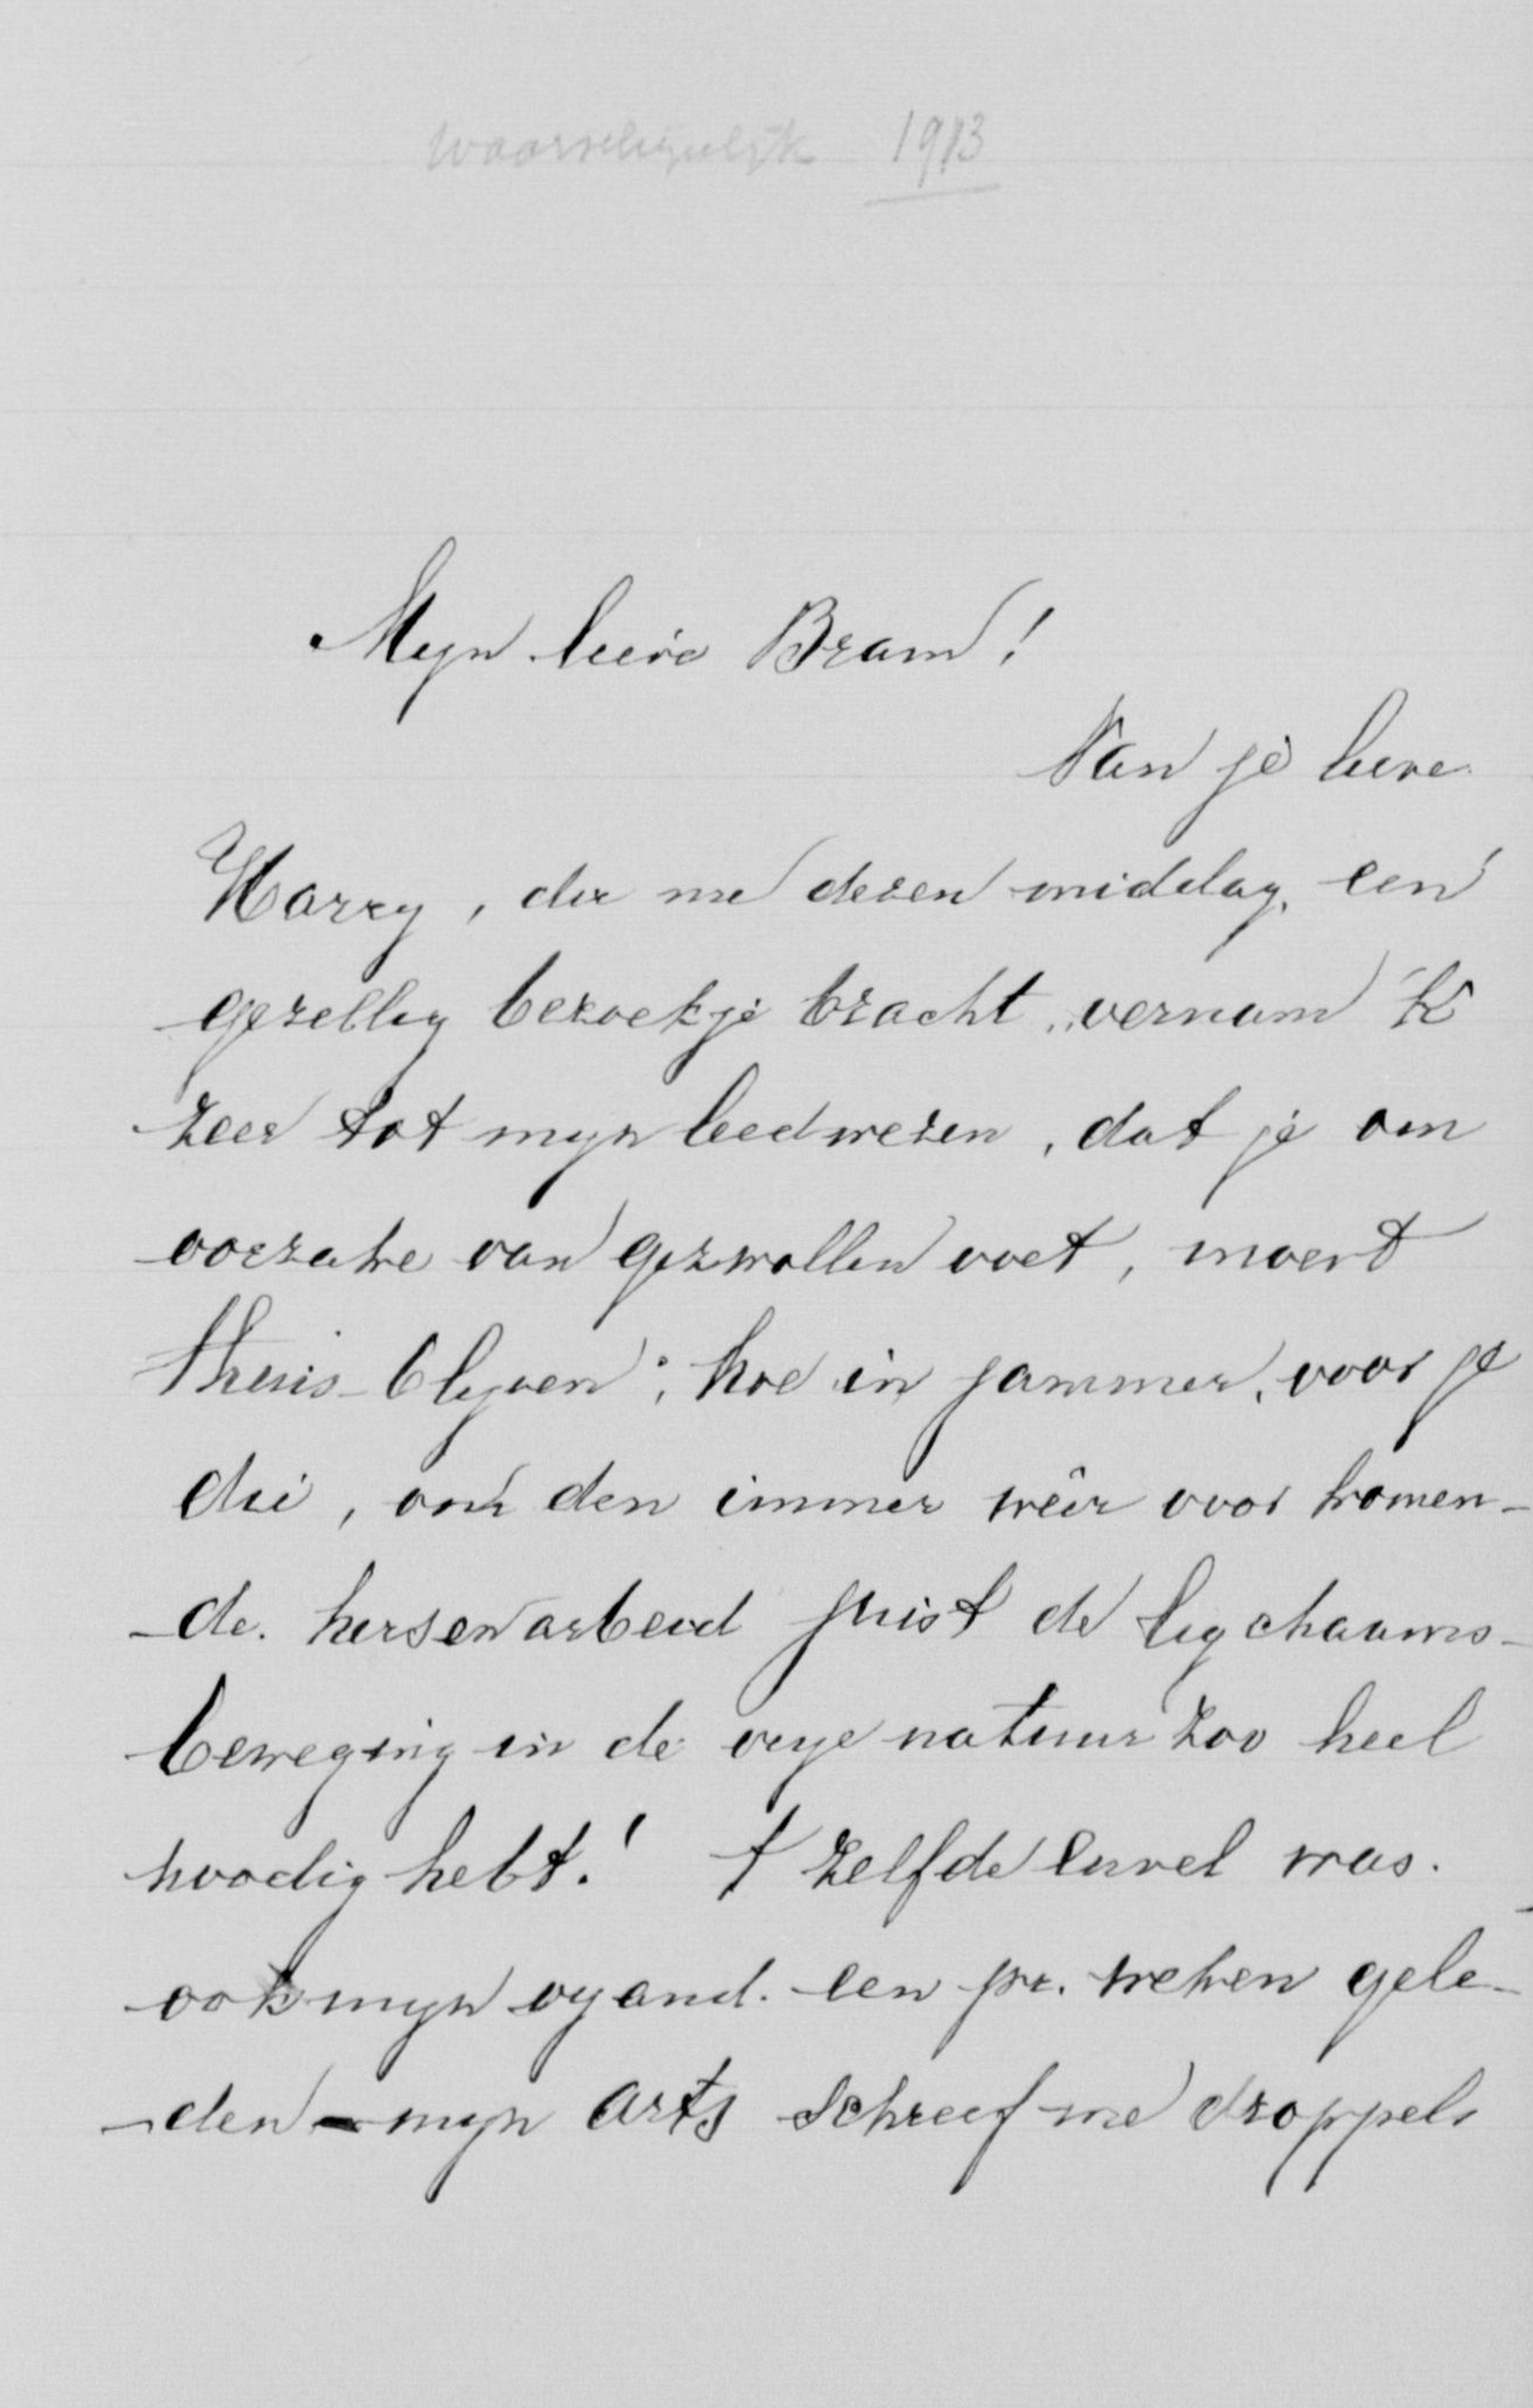 waarschijnlijk 1913
Mijn lieve Bram!
Van je lieve
Harry, die me dezen middag, een
gezellig bezoekje bracht, vernam 'k
zeer tot mijn leedwezen, dat je om
oorzake van gezwollen voet, moest
thuis blijven; hoe in jammer, voor je
die, om den immer wêer voorkomen-
-de hersenarbeid juist de ligchaams-
beweging in de vrije natuur zoo heel
noodig hebt! 't Zelfde euvel was
ook mijn vijand een pr. weken gele-
-den - mijn arts schreef me droppels